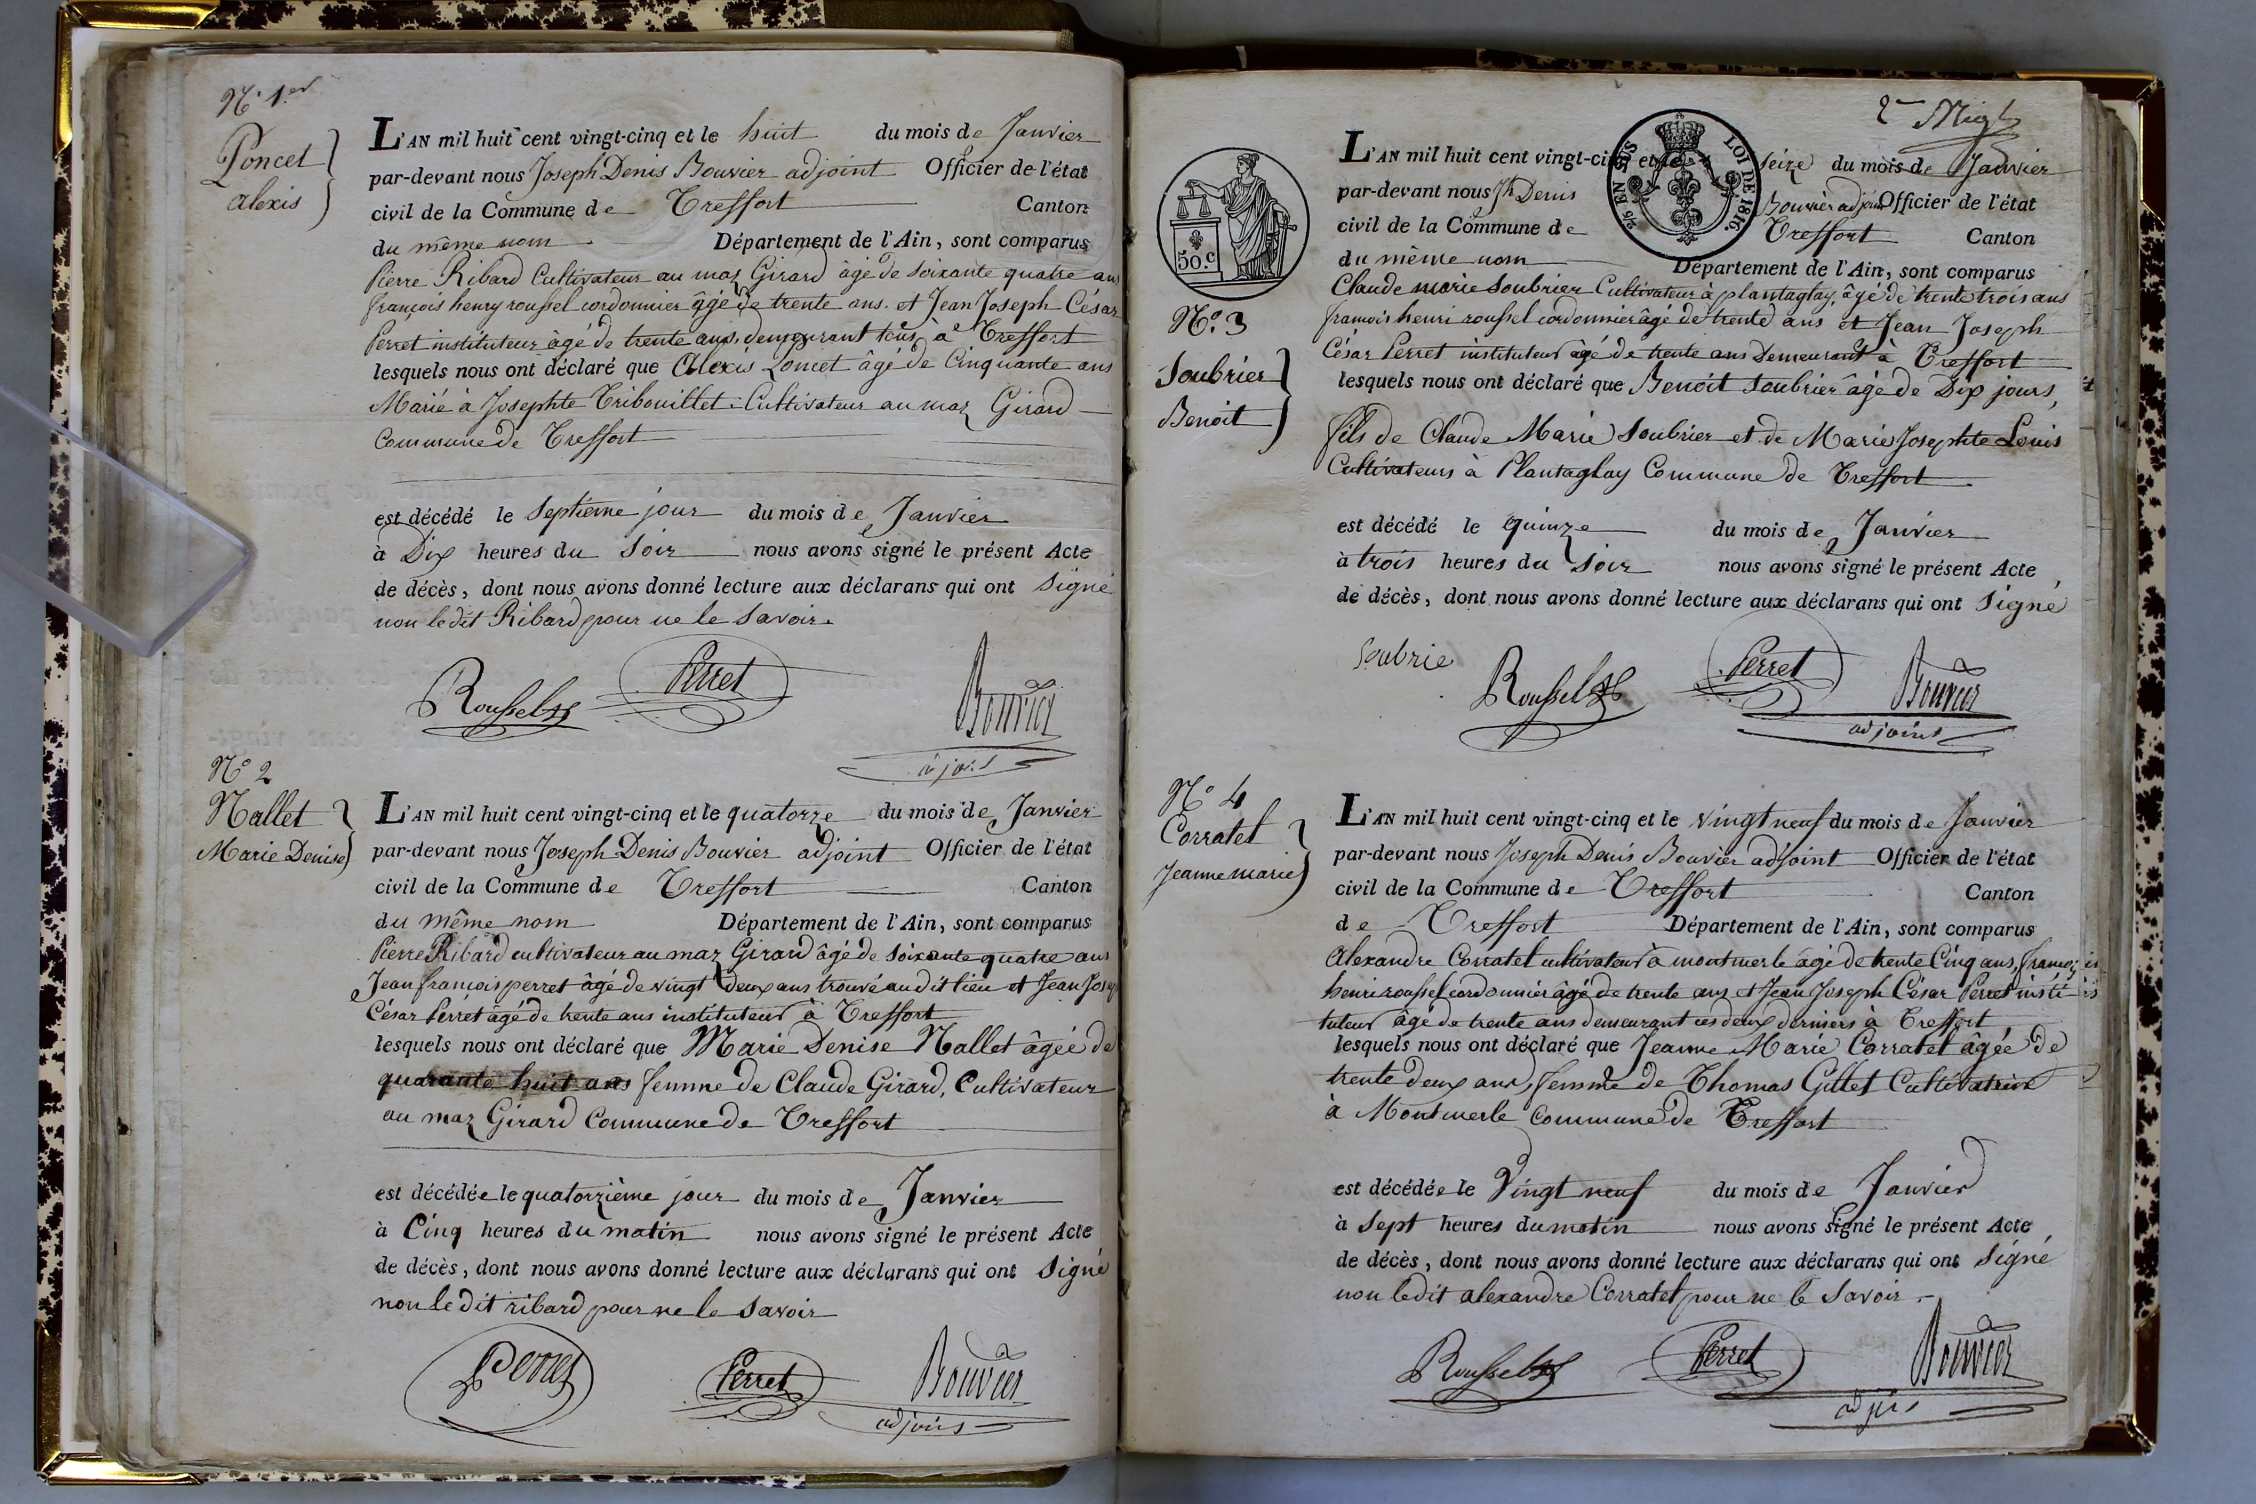 N.° 1.er
Poncet
alexis
L'AN mil huit cent vingt-cinq et le huit du mois de Janvier
par-devant nous Joseph Denis Bouvier adjoint Officier de l'état
civil de la Commune de Treffort Canton
du même nom Département de l'Ain, sont comparus
Pierre Ribard Cultivateur au maz Girard âgé de soixante quatre ans
françois henry roussel cordonnier âgé de trente ans. et Jean Joseph César
Perret instituteur âgé de trente ans, demeurant tous à Treffort
lesquels nous ont déclaré que Alexis Poncet âgé de Cinquante ans
Marié à Josephte Tribouillet Cultivateur au maz Girard
Commune de Treffort
est décédé le septième jour du mois de Janvier
à Dix heures du soir nous avons signé le présent Acte
de décès, dont nous avons donné lecture aux déclarans qui ont signé
non le dit Ribard pour ne le savoir.
Roussel Perret Bouvier
adjoint
N° 2
Nallet
Marie Denise
L'AN mil huit cent vingt-cinq et le quatorze du mois de Janvier
par-devant nous Joseph Denis Bouvier adjoint Officier de l'état
civil de la Commune de Treffort Canton
du même nom Département de l'Ain, sont comparus
Pierre Ribard cultivateur au maz Girard âgé de soixante quatre ans
Jean françois perret âgé de vingt deux ans trouvé au dit lieu et Jean Josep
César Perret âgé de trente ans instituteur à Treffort
lesquels nous ont déclaré que Marie Denise Nallet âgée de
quarante huit ans femme de Claude Girard, Cultivateur
au maz Girard Commune de Treffort
est décédée le quatorzième jour du mois de Janvier
à Cinq heures du matin nous avons signé le présent Acte
de décès, dont nous avons donné lecture aux déclarans qui ont signé
non le dit ribard pour ne le savoir
Perret Perret Bouvier
adjoint
2/5 EN SUS LOI DE 1816.
50.c
N.° 3
Soubrier
Benoit
L'AN mil huit cent vingt-cinq et le seize du mois de Janvier
par-devant nous Jh Denis Bouvier adjoint Officier de l'état
civil de la Commune de Treffort Canton
du même nom Département de l'Ain, sont comparus
Claude marie Soubrier Cultivateur à plantaglay, âgé de trente trois ans
françois henri roussel cordonnier âgé de trente ans et Jean Joseph
César Perret instituteur âgé de trente ans Demeurant à Treffort
lesquels nous ont déclaré que Benoit Soubrier âgé de Dix jours,
fils de Claude Marie Soubrier et de Marie Josephte Louis
Cultivateurs à Plantaglay Commune de Treffort
est décédé le quinze du mois de Janvier
à trois heures du soir nous avons signé le présent Acte
de décès, dont nous avons donné lecture aux déclarans qui ont signé
Soubrie Roussel Perret Bouvier
adjoint
N° 4
Corratel
Jeanne marie
L'AN mil huit cent vingt-cinq et le vingt neuf du mois de Janvier
par-devant nous Joseph Denis Bouvier adjoint Officier de l'état
civil de la Commune de Treffort Canton
de Treffort Département de l'Ain, sont comparus
Alexandre Corratel cultivateur à montmerle âgé de trente Cinq ans, françois
henri roussel cordonnier âgé de trente ans et Jean Joseph César Perret insti-
tuteur âgé de trente ans demeurant ces deux derniers à Treffort
lesquels nous ont déclaré que Jeanne Marie Corratel âgée de
trente deux ans, femme de Thomas Gillet Cultivatrice
à Montmerle commune de Treffort
est décédée le Vingt neuf du mois de Janvier
à sept heures du matin nous avons signé le présent Acte
de décès, dont nous avons donné lecture aux déclarans qui ont signé
non ledit alexandre Corratel pour ne le savoir.
Roussel Perret Bouvier
adjoint